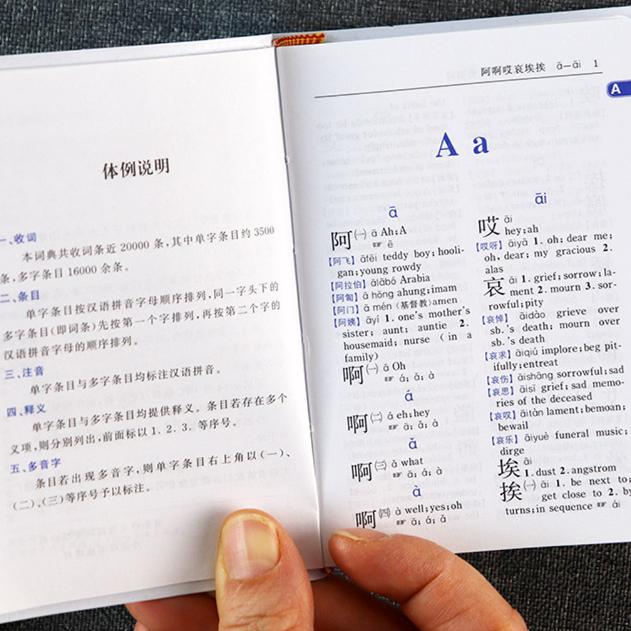 体例说明
一、收词
本词典共收词条近 20000 条，其中单字条目约 3500
条，多字条目 16000 余条。
二、条目
单字条目按汉语拼音字母顺序排列，同一字头下的
多字条目（即词条）先按第一个字排列，再按第二个字的
汉语拼音字母的顺序排列。
三、注音
单字条目与多字条目均标注汉语拼音。
四、释义
单字条目与多字条目均提供释义。条目若存在多个
义项，则分别列出，前面标以 1. 2. 3. 等序号。
五、多音字
条目若出现多音字，则单字条目右上角以（一）、
（二）、（三）等序号予以标注。
阿啊哎哀埃挨 ā—āi 1
A
A a
ā
阿 (一) ā Ah; A
☞ ē
【阿飞】 āfēi teddy boy; hooli-
gan; young rowdy
【阿拉伯】 ālābó Arabia
【阿訇】 ā hōng ahung; imam
【阿门】 ā mén (基督教) amen
【阿姨】 āyí 1. one's mother's
sister; aunt; auntie 2.
housemaid; nurse (in a
family)
啊 (一) ā Oh
☞ á; ǎ; à
á
啊 (二) á eh; hey
☞ ā; ǎ; à
ǎ
啊 (三) ǎ what
☞ ā; á; à
à
啊 (四) à well; yes; oh
☞ ā; á; ǎ
āi
哎 āi
hey; ah
【哎呀】 āiyā 1. oh; dear me;
oh, dear; my gracious 2.
alas
哀 āi 1. grief; sorrow; la-
ment 2. mourn 3. sor-
rowful; pity
【哀悼】 āidào grieve over
sb. 's death; mourn over
sb. 's death
【哀求】 āiqiú implore; beg pit-
ifully; entreat
【哀伤】 āishāng sorrowful; sad
【哀思】 āisī grief; sad memo-
ries of the deceased
【哀叹】 āitàn lament; bemoan;
bewail
【哀乐】 āiyuè funeral music;
dirge
埃 āi
1. dust 2. angstrom
挨 (一) āi 1. be next to;
get close to 2. by
turns; in sequence ☞ ái